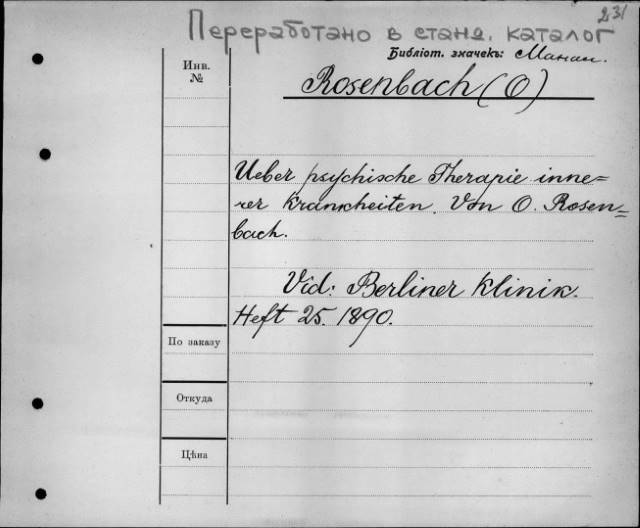 231
Переработано в станд. каталог
Библіот. значекъ:
Инв.
№
Rosenbach (O)
Ueber psychische Therapie inne=
rer Krankheiten. Von O. Rosen=
bach.
Vid: Berliner Klinik.
Heft 25. 1890.
По заказу
Откуда
Цѣна